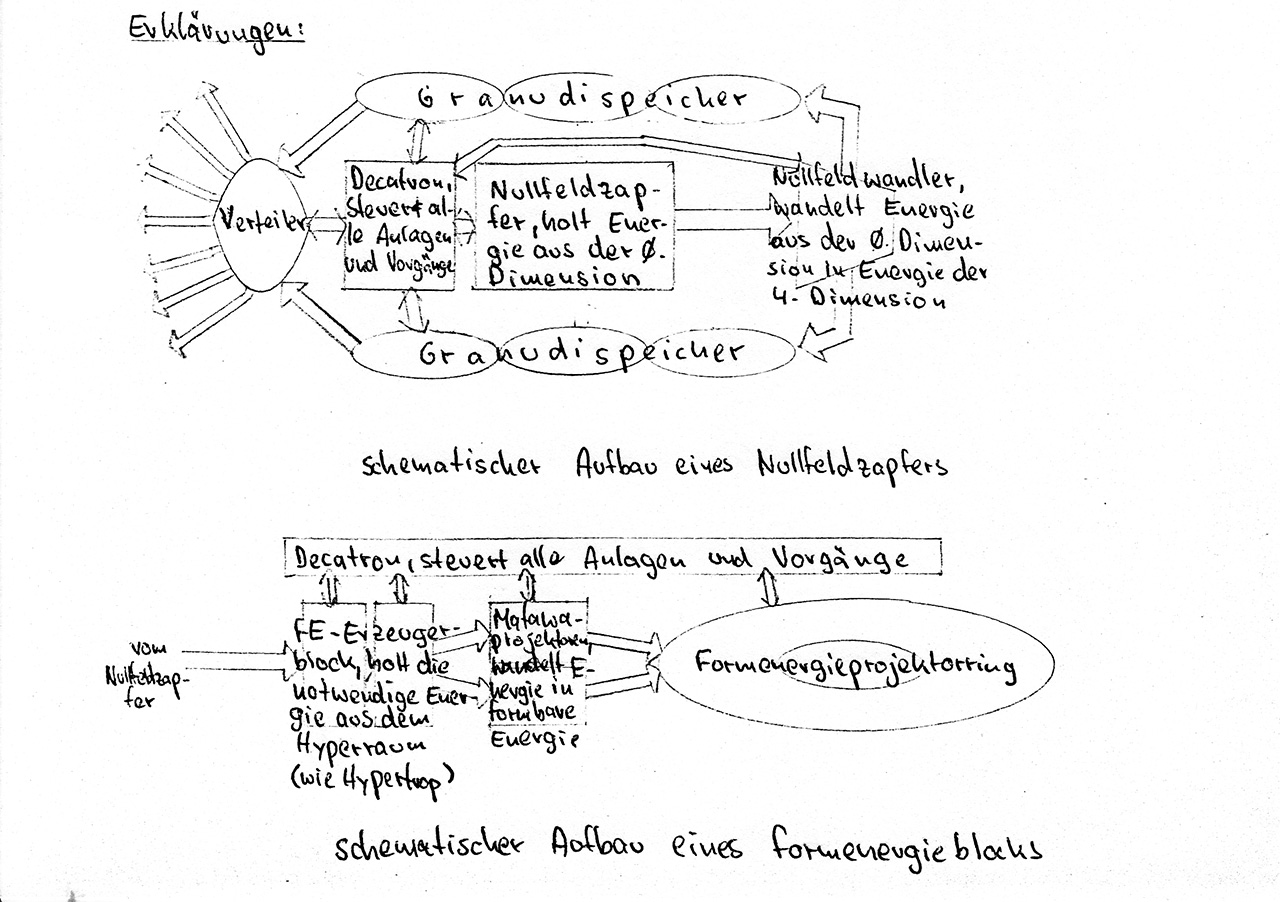 Erklärungen:
Granudispeicher
Decatron,
steuert al-
le Anlagen
und Vorgänge
Verteiler
Nullfeldzap-
fer, holt Ener-
gie aus der Ø.
Dimension
Nullfeldwandler,
wandelt Energie
aus der Ø. Dimen-
sion in Energie der
4. Dimension
Granudispeicher
schematischer Aufbau eines Nullfeldzapfers
Decatron, steuert alle Anlagen und Vorgänge
vom
Nullfeldzap-
fer
FE-Erzeuger-
block, holt die
notwendige Ener-
gie aus dem
Hyperraum
(wie Hypertrop)
projektoren,
wandelt E-
nergie in
formbare
Energie
Formenergieprojektorring
schematischer Aufbau eines Formenergieblocks